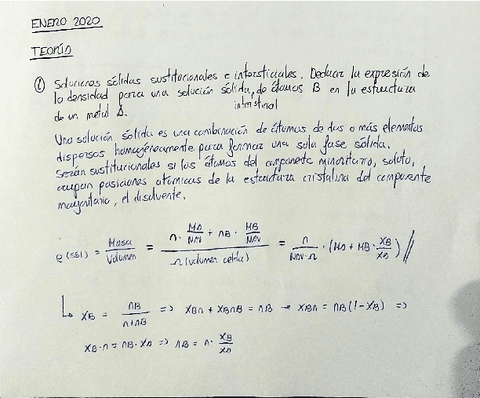 ENERO 2020
TEORÍA
① Soluciones sólidas sustitucionales e intersticiales. Deducir la expresión de
la densidad para una solución sólida, de átomos B en la estructura
de un metal A. intersticial
Una solución sólida es una combinación de átomos de dos o más elementos
dispersos homogéneamente para formar una sola fase sólida.
Serán sustitucionales si los átomos del componente minoritario, soluto,
ocupan posiciones atómicas de la estructura cristalina del componente
mayoritario, el disolvente.
ρ(SSI) = Masa/Volumen = (n · MA/NAV + nB · MB/NAV)/(Ω (volumen celda)) = n/(NAV·Ω) · (MA + MB · XB/XA) //
↳ XB = nB/(n+nB) => XBn + XBnB = nB → XBn = nB(1-XB) =>
XB·n = nB·XA => nB = n · XB/XA